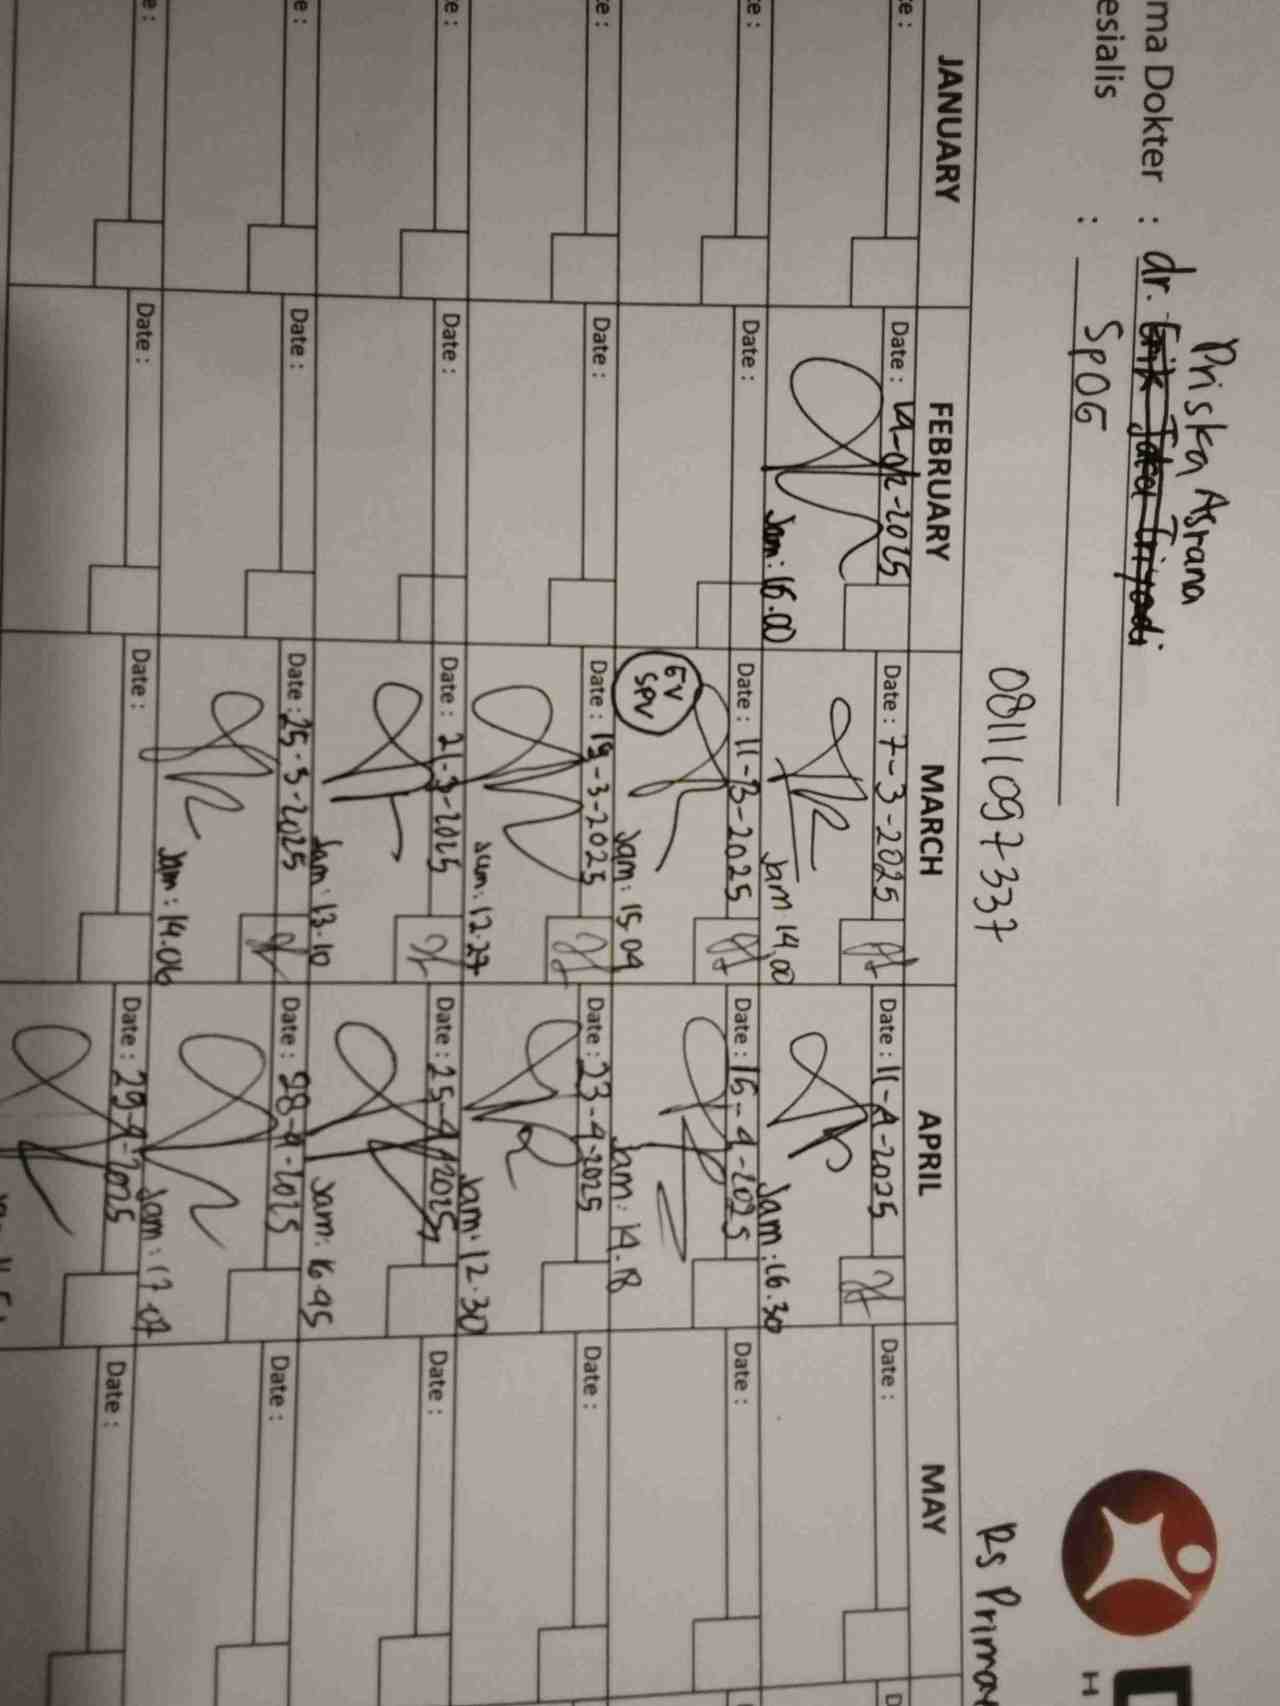 Priska Asrana
ma Dokter : dr.
esialis : SpOG
08111097337
Rs Primay
H
JANUARY FEBRUARY MARCH APRIL MAY
te : Date : -2025 Date : 7-3-2025 Date : 11-4-2025 Date :
Jam: 16.00 Jam 14,00 Jam: 16.30
te : Date : Date : 11-3-2025 Date : 16-4-2025 Date :
EV
SPV
Jam: 15.09 Jam: 14.18
te : Date : Date : 19-3-2025 Date : 23-4-2025 Date :
Jam: 12.27 Jam: 12.30
te : Date : Date : 21-3-2025 Date : 25-4-2025 Date :
Jam: 13.10 Jam: 16.45
te : Date : Date : 25-3-2025 Date : 28-4-2025 Date :
Jam: 14.06 Jam: 17.07
te : Date : Date : Date : 29-4-2025 Date :